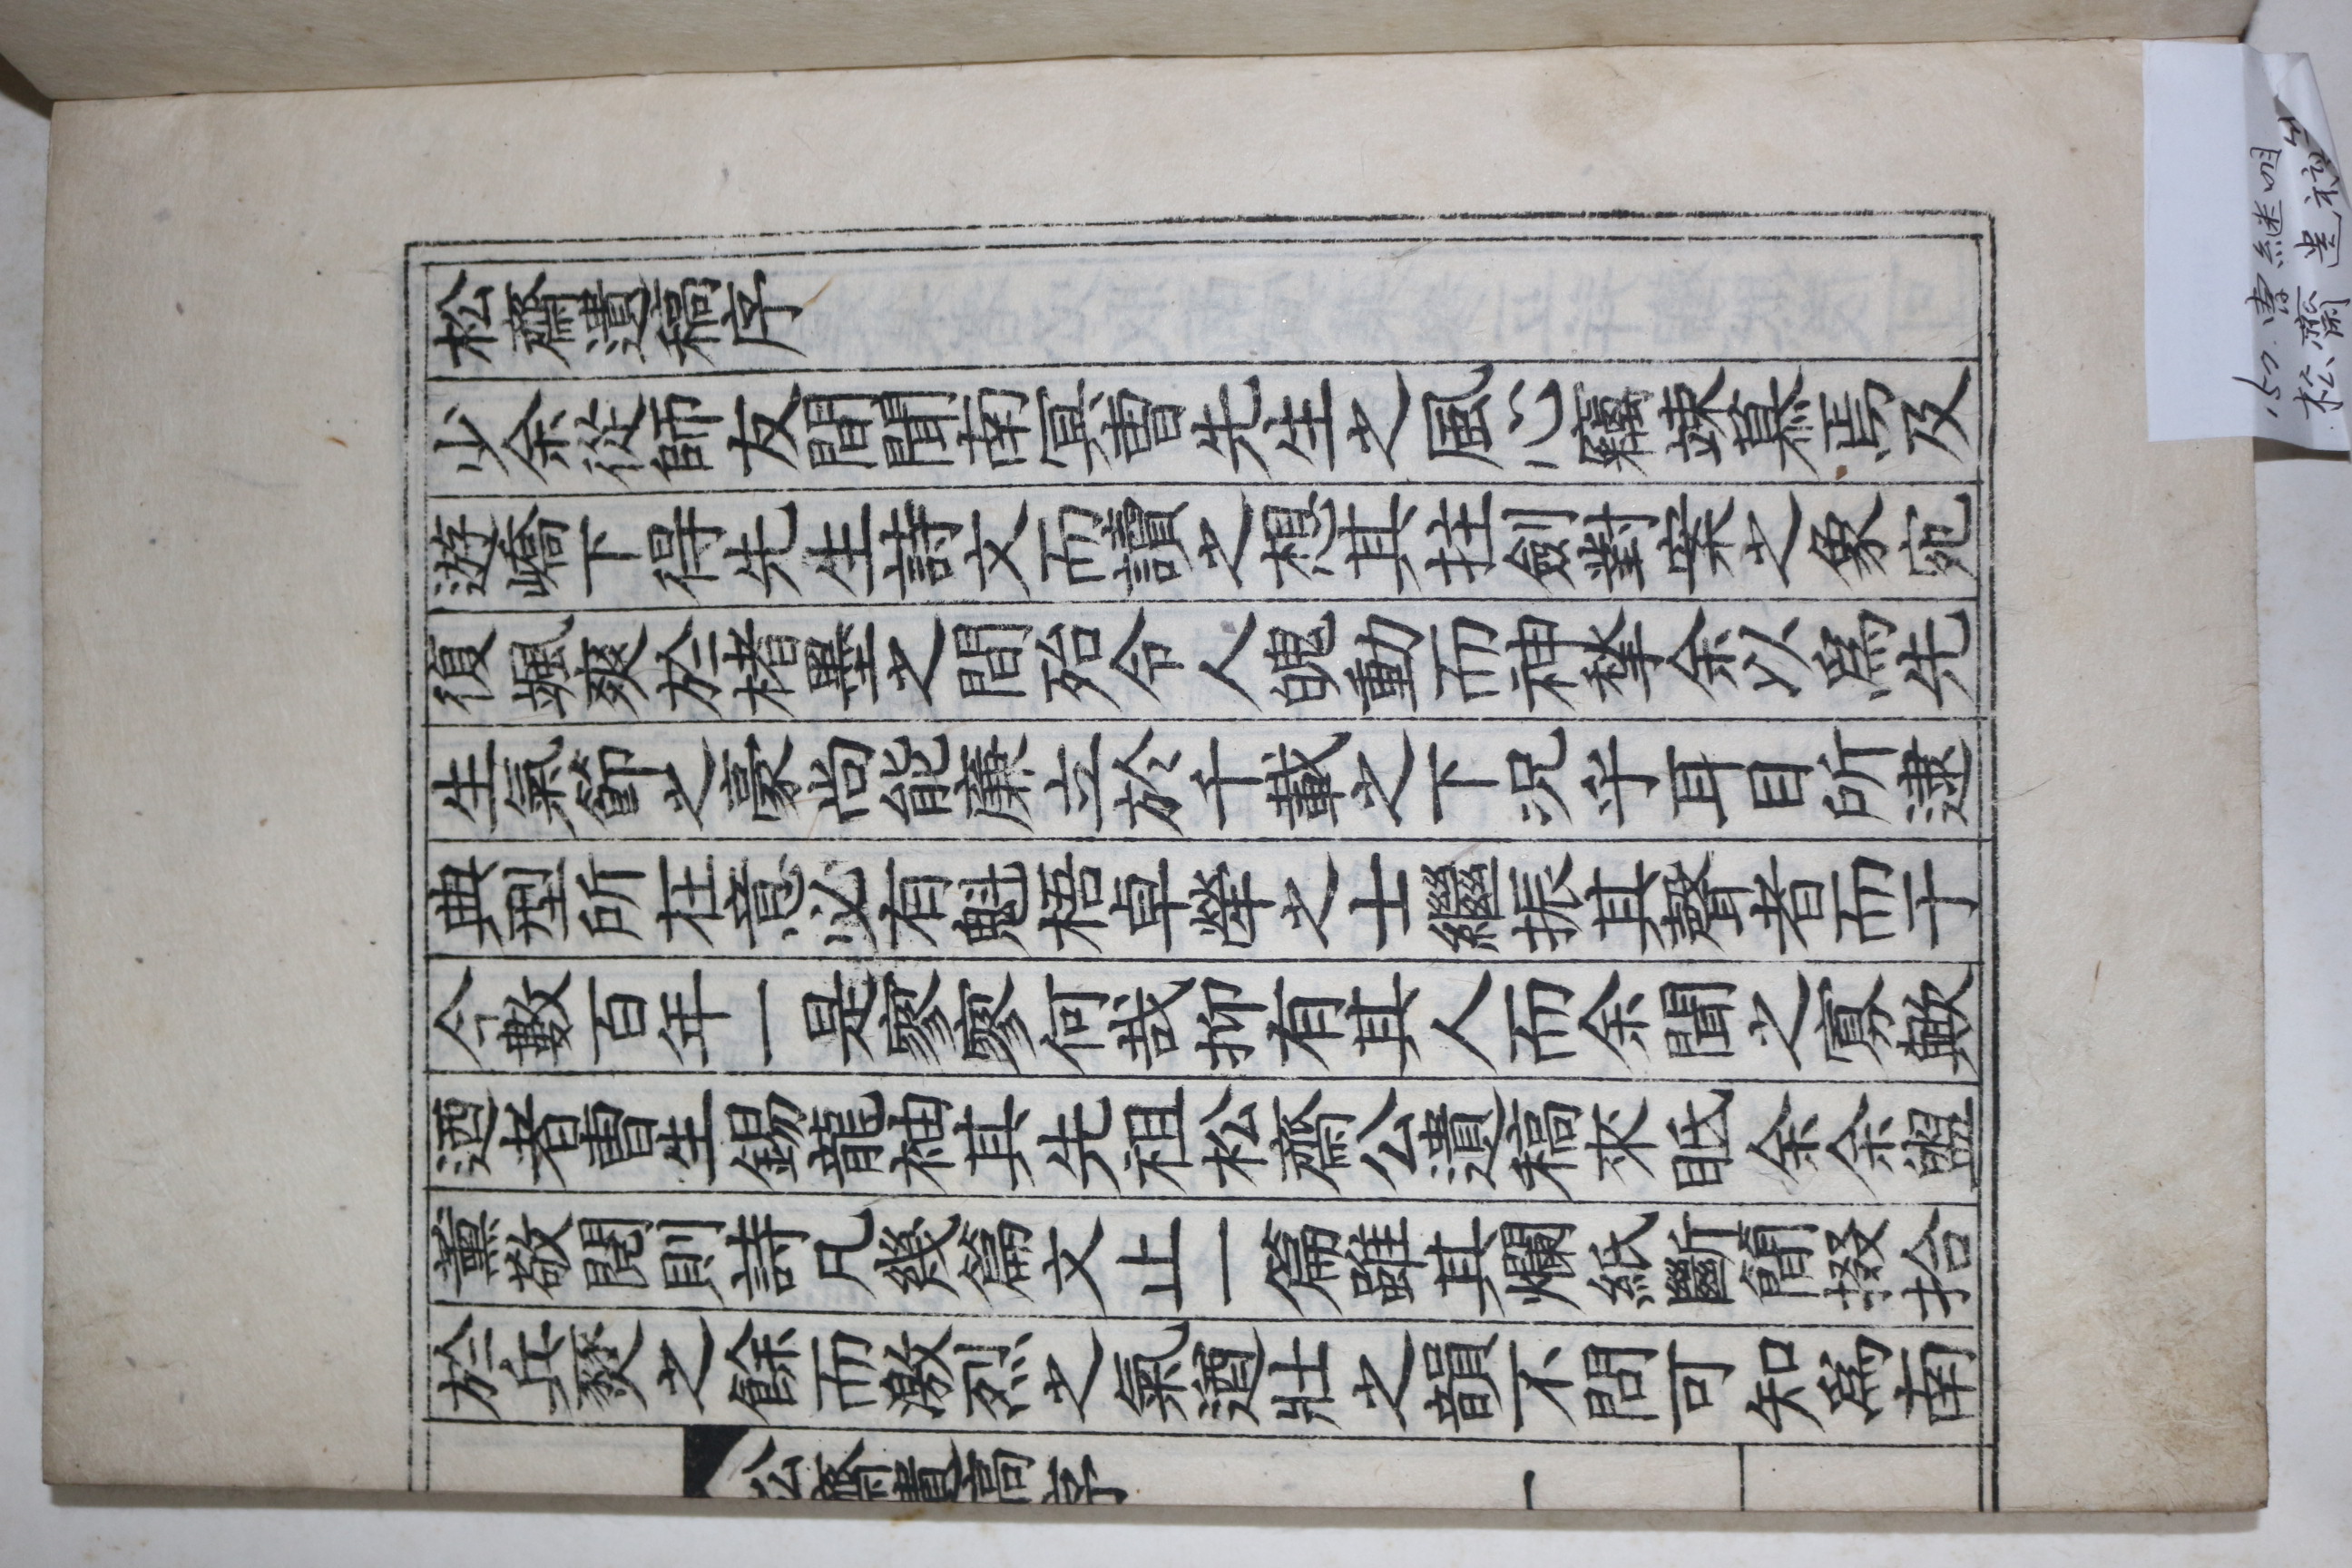 松齋遺稿序
少余從師友間聞南冥曺先生之風心竊竦慕焉及
遊嶠下得先生詩文而讀之想其拄劍對案之象宛
復颯爽於楮墨之間殆令人魄動而神聳余以爲先
生氣節之豪尚能廉立於千載之下況乎耳目所逮
典型所在意必有魁梧卓犖之士繼振其聲者而于
今數百年一是寥寥何哉抑有其人而余聞之寡歟
迺者曺生錫龍袖其先祖松齋公遺稿來眡余余盥
薰敬閱則詩凡幾篇文止一篇雖其爛紙斷簡掇拾
於兵燹之餘而激烈之氣遒壯之韻不問可知爲南
松齋遺稿序
一
曺繼明
松齋遺稿